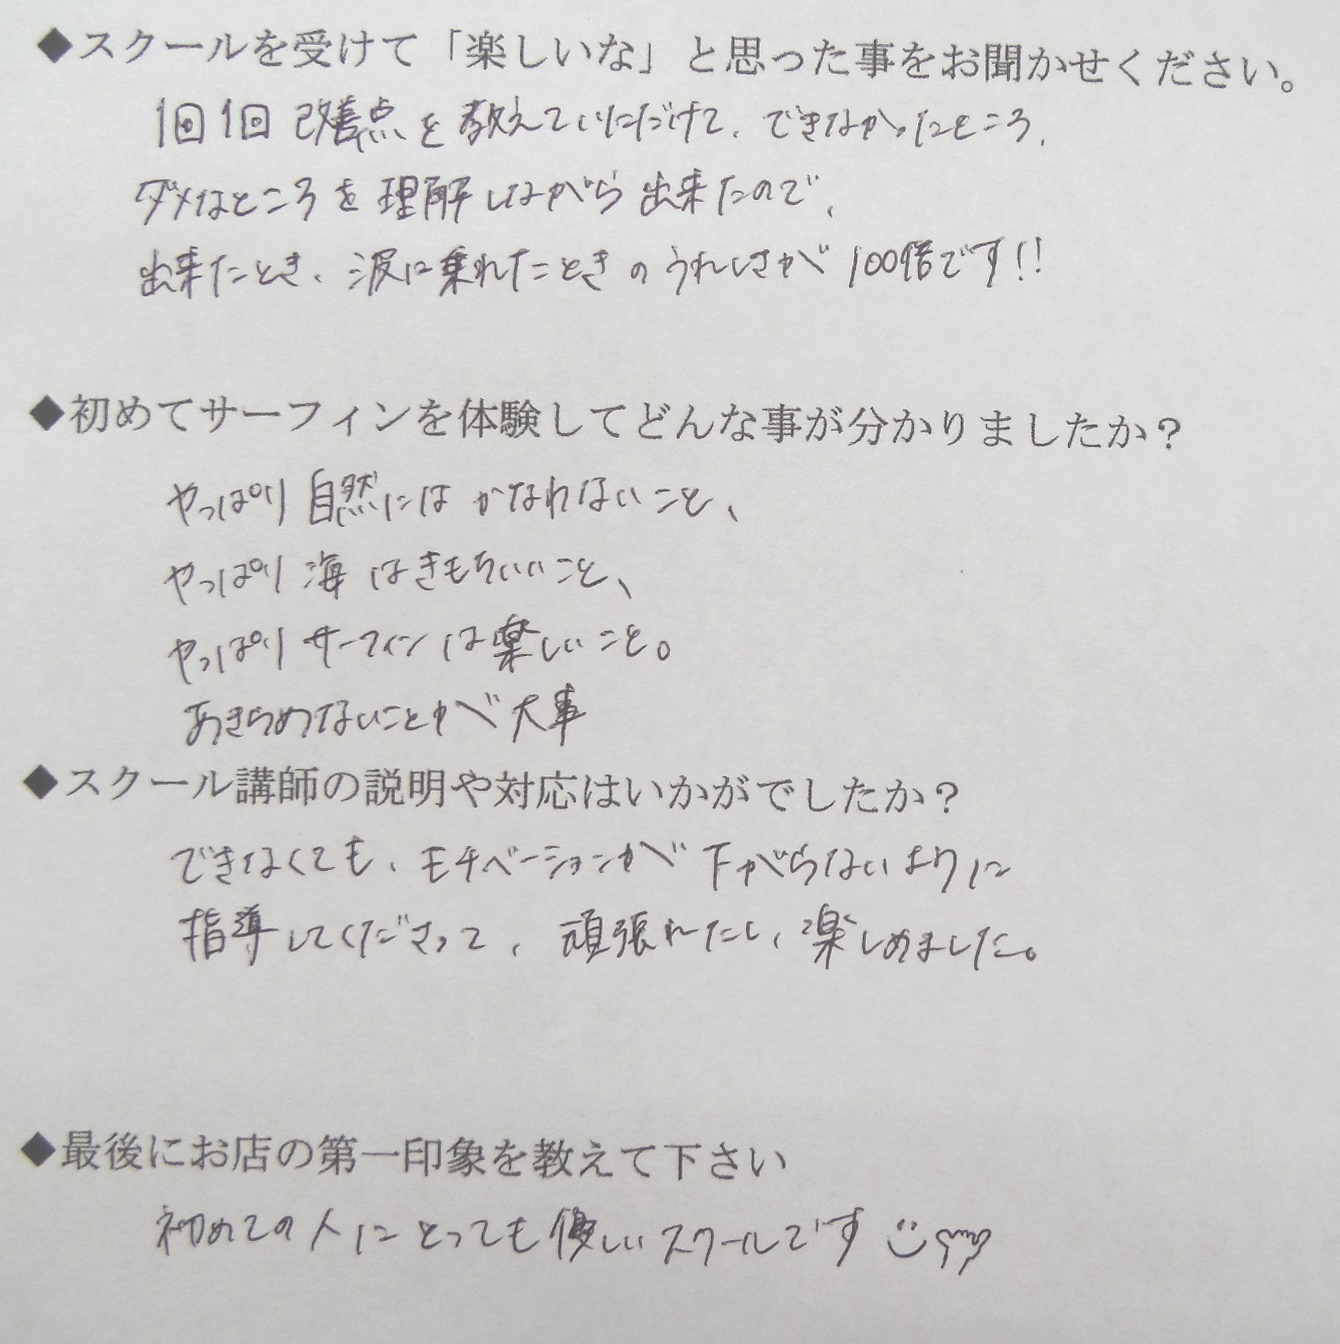 ◆スクールを受けて「楽しいな」と思った事をお聞かせください。
1回1回 改善点を教えていただけて、できなかったところ、
ダメなところを理解しながら出来たので、
出来たとき、波に乗れたときのうれしさが100倍です!!
◆初めてサーフィンを体験してどんな事が分かりましたか？
やっぱり自然にはかなわないこと、
やっぱり海はきもちいいこと、
やっぱりサーフィンは楽しいこと。
あきらめないことが大事
◆スクール講師の説明や対応はいかがでしたか？
できなくても、モチベーションが下がらないように
指導してくださって、頑張れたし、楽しめました。
◆最後にお店の第一印象を教えて下さい
初めての人にとっても優しいスクールです